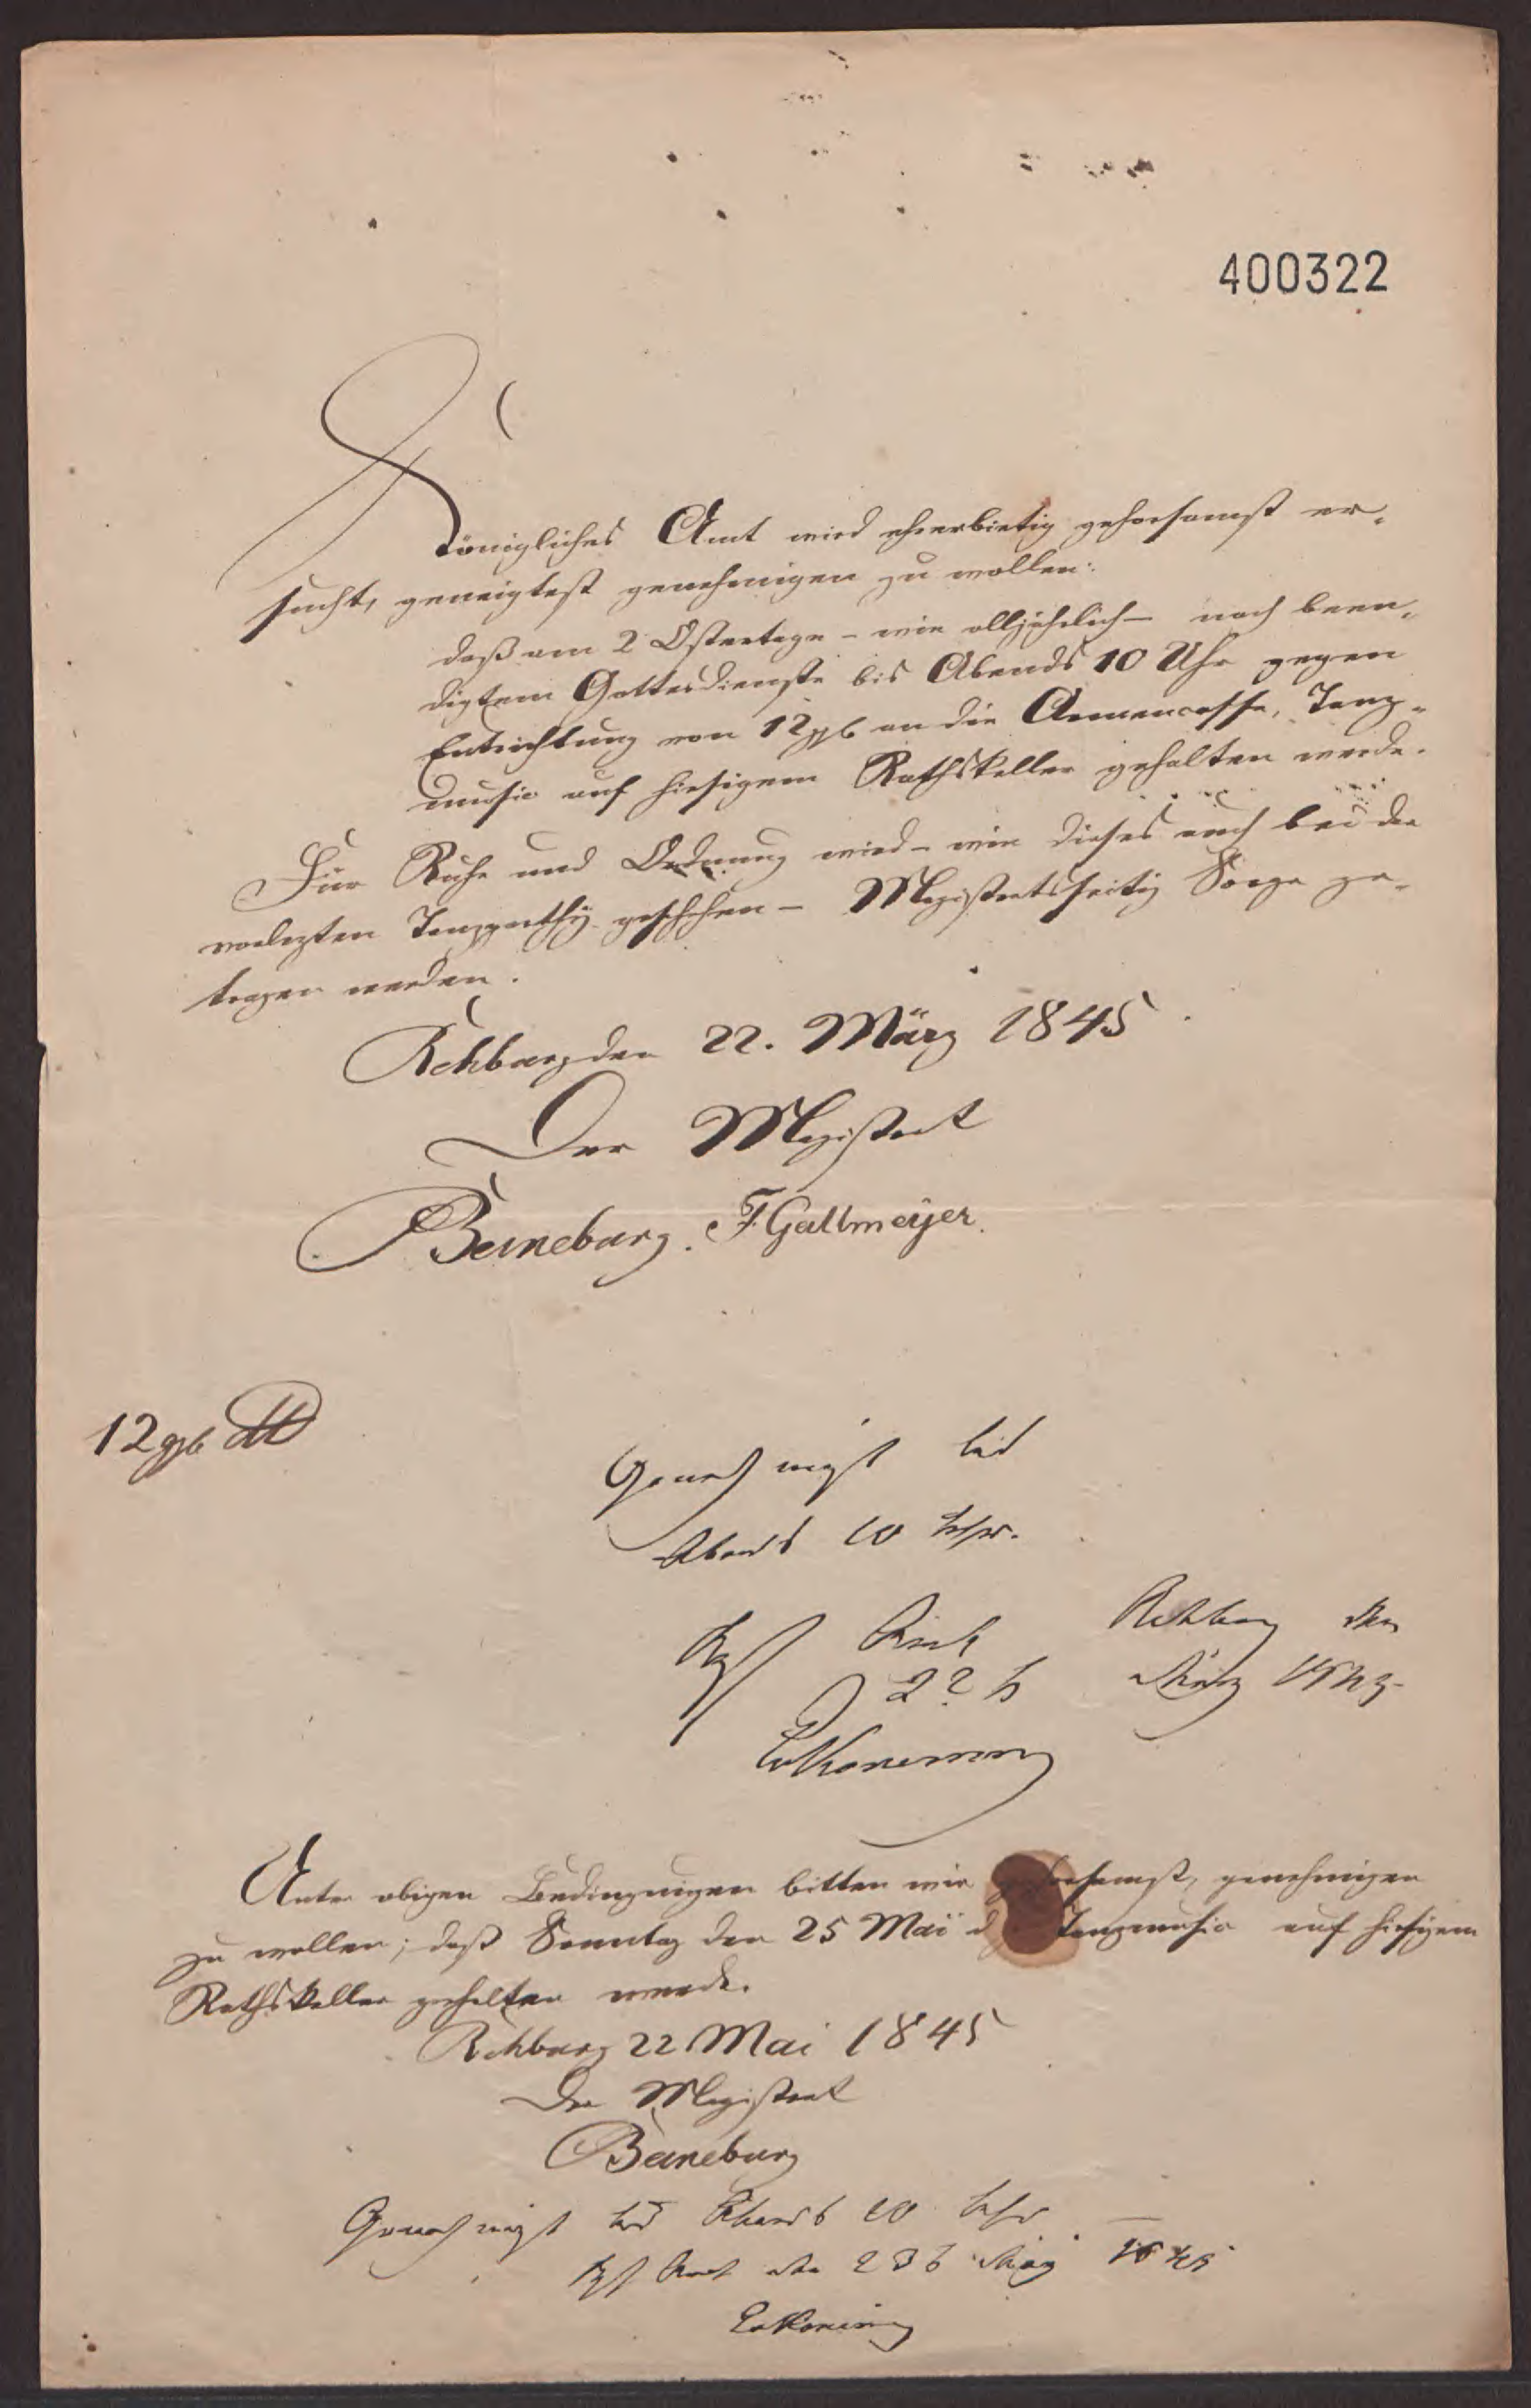 400322
Königliches Amt wird ehrerbietig gehorsamst er-
sucht, geneigtest genehmigen zu wollen:
daß am 2 Ostertage - wie alljährlich - nach been-
digtem Gottesdienste bis Abends 10 Uhr gegen
Entrichtung von 12 ggr an die Armencasse, Tanz-
music auf hiesigem Rathskeller gehalten werde.
Für Ruhe und Ordnung wird - wie dieses auch bei der
vorletzten geschehen - Magistratsseitig Sorge ge-
tragen werden.
Rehburg den 22. März 1845
Der Magistrat
Beineburg. F. Gallmeyer.
12 ggr
Genehmigt bis
Abends 10 Uhr.
Kgl Amt Rehburg den
22 März 1845
Unter obigen Bedingungen bitten wir gehorsamst, genehmigen
zu wollen; daß Sonntag den 25 Mai Tanzmusic auf hiesigem
Rathskeller gehalten werde.
Rehburg 22 Mai 1845
Der Magistrat
Beineburg
Genehmigt bis Abends 10 Uhr
Kgl Amt den 23 May 1845